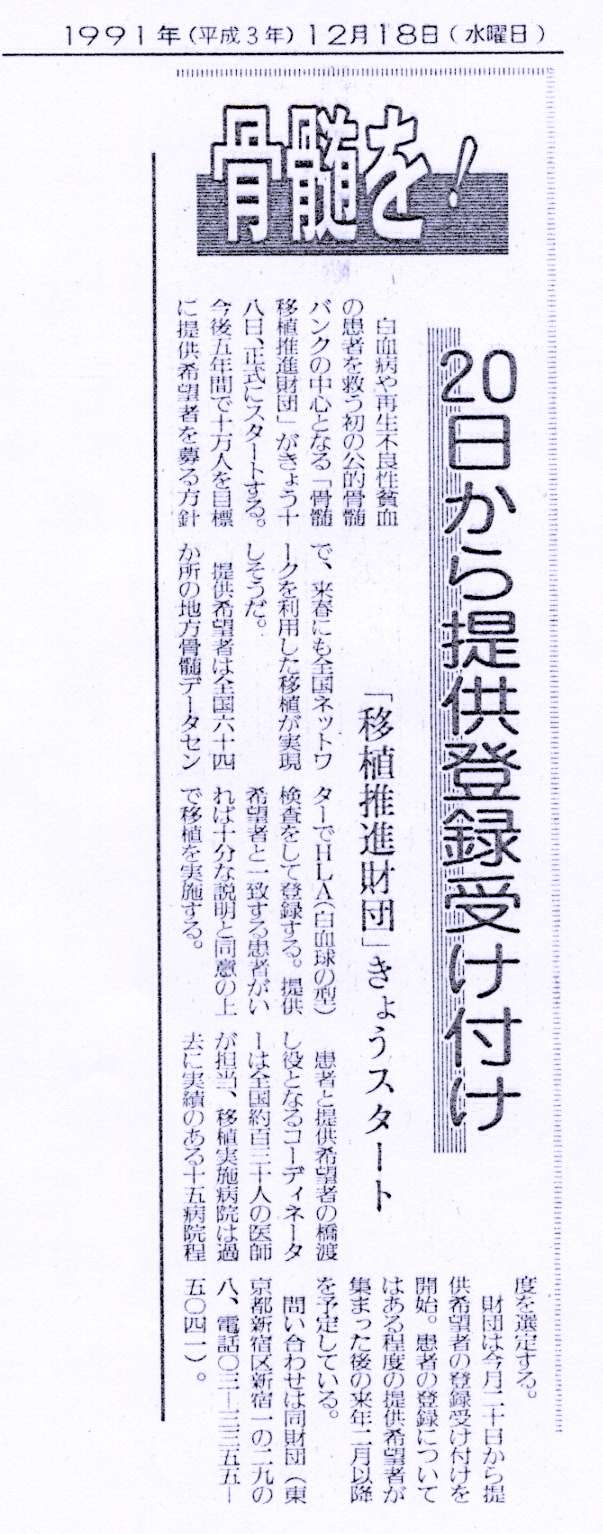 1991年(平成3年)12月18日(水曜日)
骨髄を!
20日から提供登録受け付け
「移植推進財団」きょうスタート
白血病や再生不良性貧血
の患者を救う初の公的骨髄
バンクの中心となる「骨髄
移植推進財団」がきょう十
八日、正式にスタートする。
今後五年間で十万人を目標
に提供希望者を募る方針
で、来春にも全国ネットワ
ークを利用した移植が実現
しそうだ。
提供希望者は全国六十四
か所の地方骨髄データセン
ターでHLA(白血球の型)
検査をして登録する。提供
希望者と一致する患者がい
れば十分な説明と同意の上
で移植を実施する。
患者と提供希望者の橋渡
し役となるコーディネータ
ーは全国約百三十人の医師
が担当、移植実施病院は過
去に実績のある十五病院程
度を選定する。
財団は今月二十日から提
供希望者の登録受け付けを
開始。患者の登録について
はある程度の提供希望者が
集まった後の来年二月以降
を予定している。
問い合わせは同財団(東
京都新宿区新宿一の二九の
八、電話〇三―三三五五―
五〇四一)。